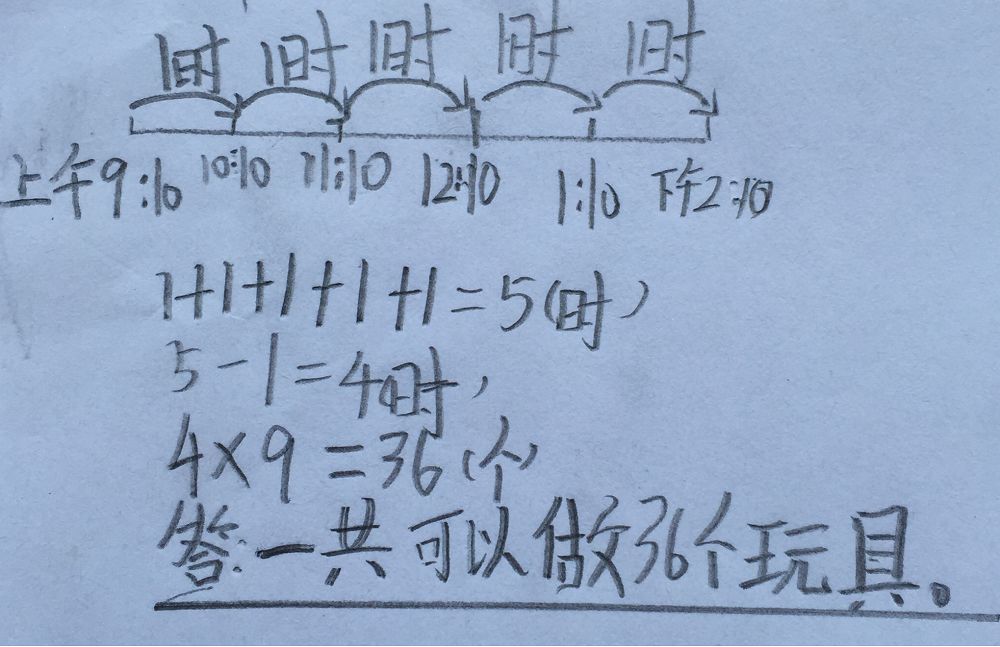 1时 1时 1时 1时 1时
上午9:10 10:10 11:10 12:10 1:10 下午2:10
1+1+1+1+1=5(时)
5-1=4(时)
4×9=36(个)
答:一共可以做36个玩具。